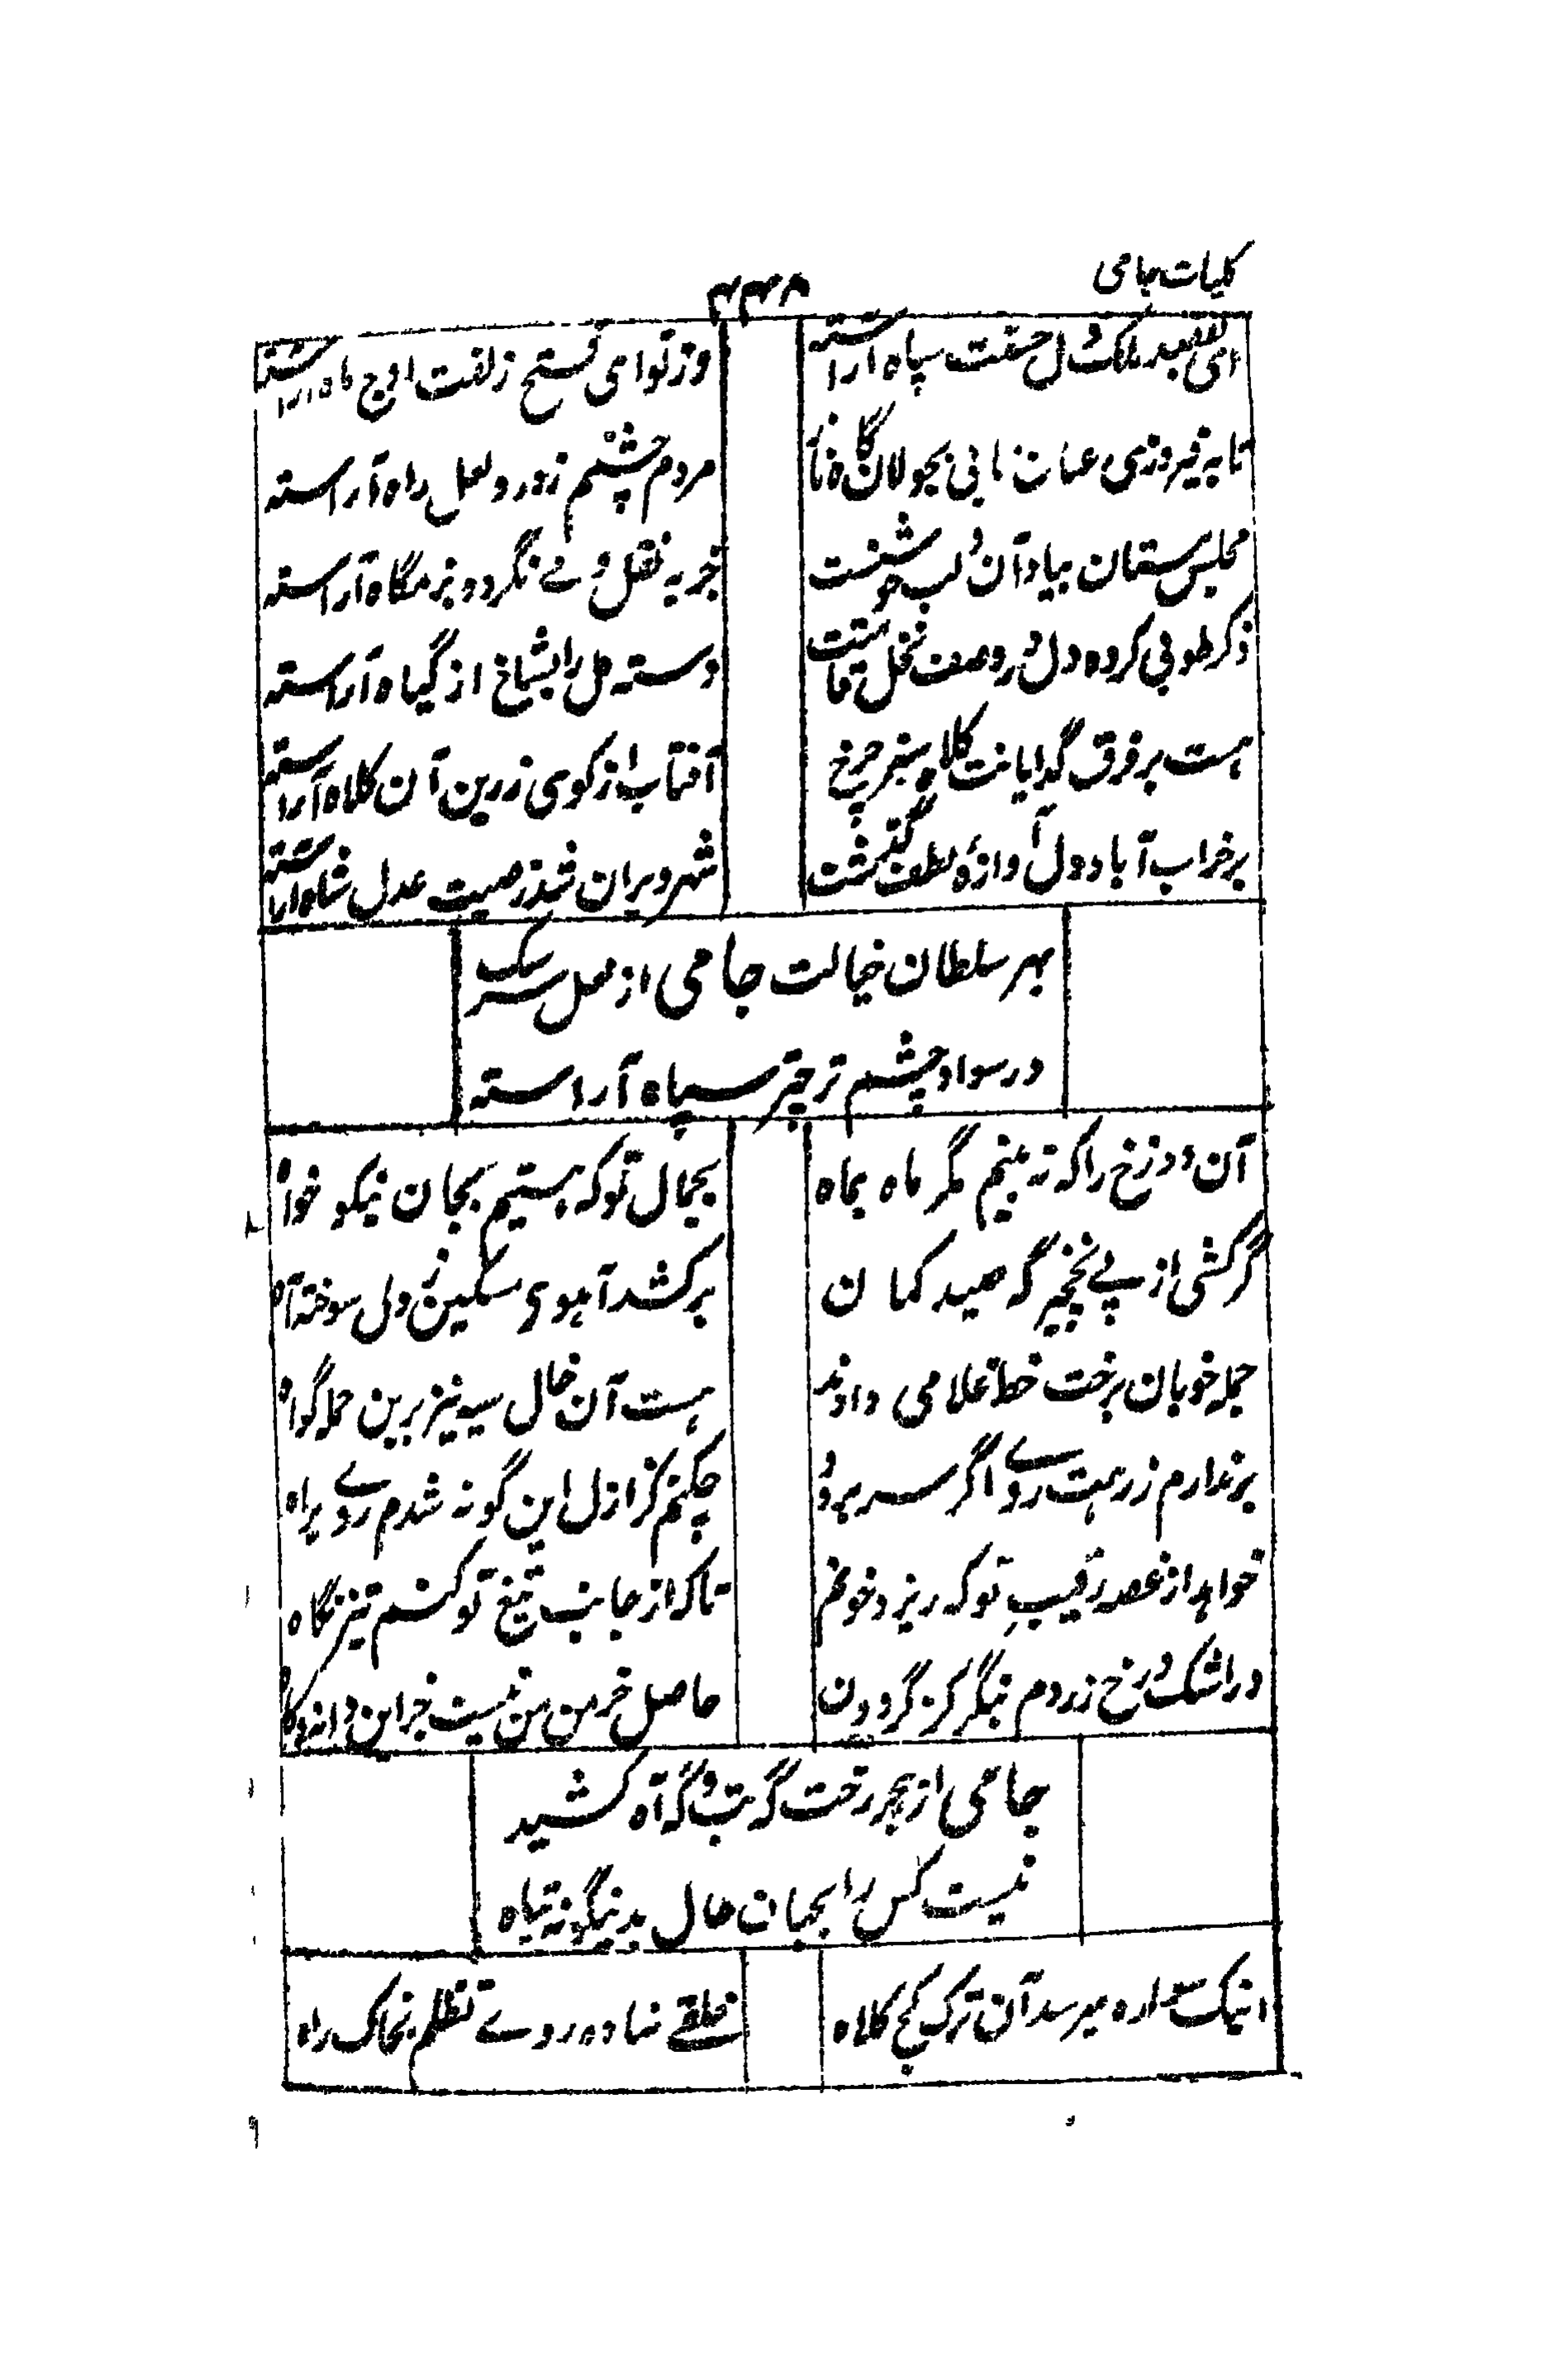 کلیات جامی
۴۴۸
ای بقصد ملک دل حسنت سپاه آراسته
وز توامی فتح زلفت اوج ماه آراسته
تا به فیروزی عنان تابی بجولان گاه ناز
مردم چشمم ز در و لعل راه آراسته
مجلس مستان بیاد آن دو لب خوشست
جز به نقل و مے نگردد بزمگاه آراسته
ذکر طوبی کرده دل در وصف نخل قامتت
دسته گل را بشاخ از گیاه آراسته
هست بر فرق گدایانت کلاه سبز چرخ
آفتاب از کوی زرین آن کلاه آراسته
بر خراب آباد دل آوازهٔ لطفت گذشت
شهر ویران شد ز صیت عدل شاه آراسته
بهر سلطان خیالت جامی از لعل سرشک
در سواد چشم تر چتر سیاه آراسته
آن دو رخ را که نه بینم مگر ماه بماه
بجمال تو که هستیم بجان نیکو خواه
گر کشی از پے نخچیر گه صید کمان
بر کشد آهوی مسکین ز دل سوخته آه
جمله خوبان برخت خط غلامی دادند
هست آن خال سیه نیز برین جمله گواه
برندارم ز رهت روے اگر سر برود
چکنم کز ازل این گونه شدم روے براه
خواهد از غصه رقیب تو که ریزد خونم
تا که از جانب تیغ تو کنم تیز نگاه
در اشک و رخ زردم بنگر کز گردون
حاصل خرمن من نیست جز این دانه و کاه
جامی از هجر رخت گه تب و گه آه کشید
نیست کس را بجهان حال بدینگونه تباه
اینک سواره میرسد آن ترک کج کلاه
خلقے نهاده روے تظلم بخاک راه